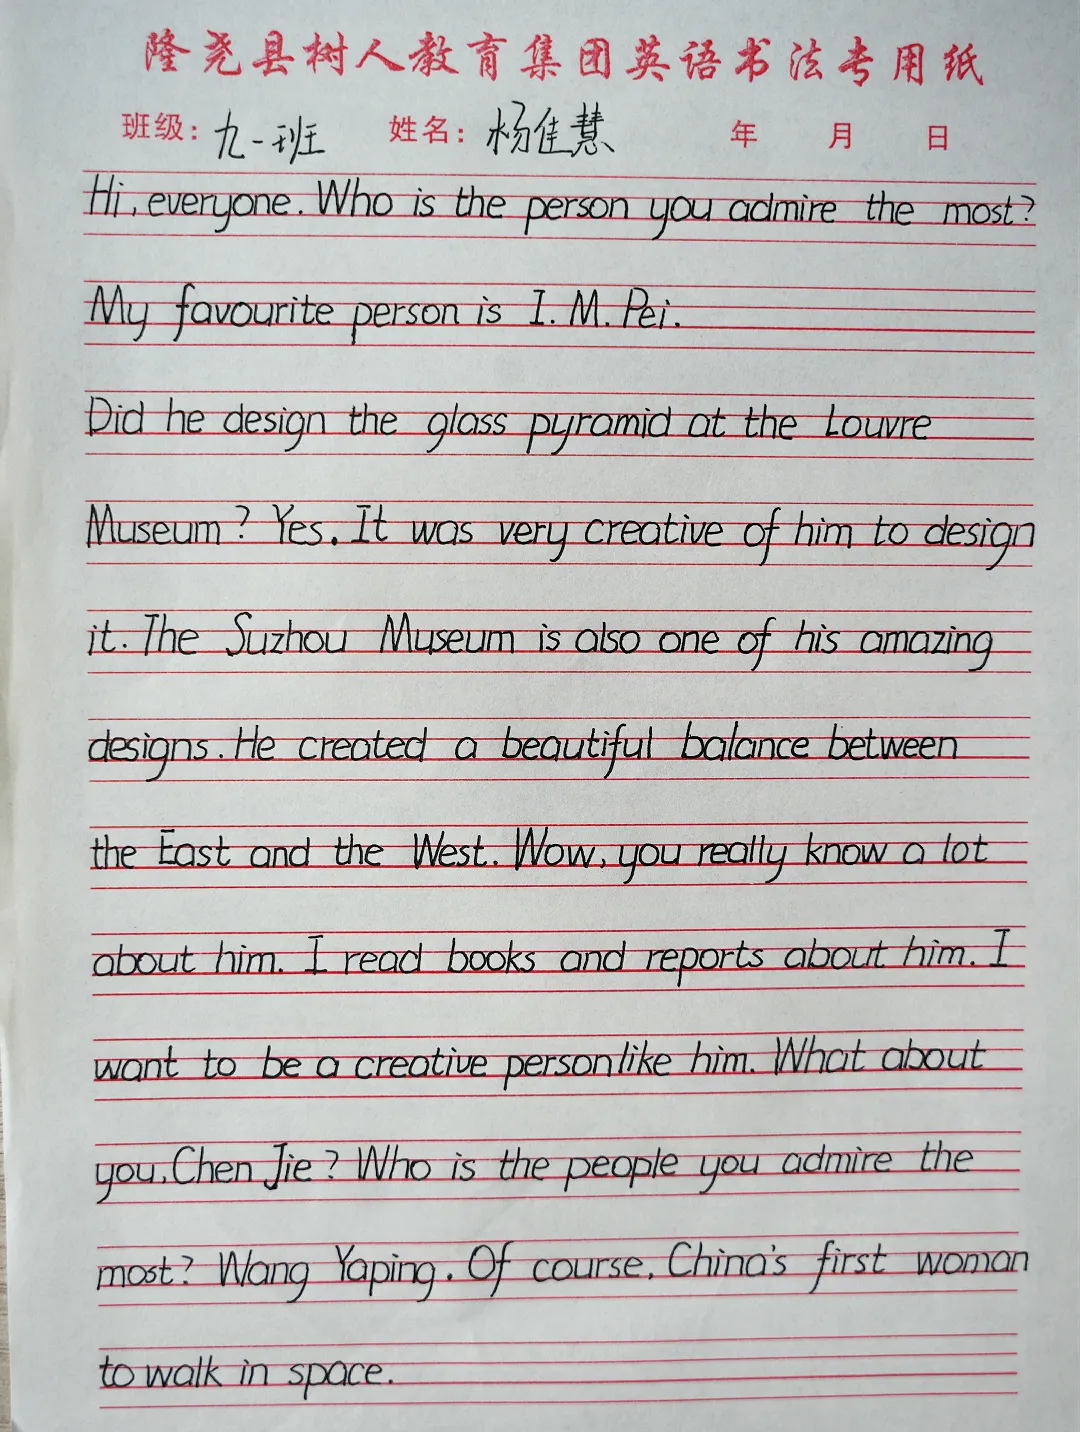 隆尧县树人教育集团英语书法专用纸
班级: 九一班 姓名: 杨佳慧 年 月 日
Hi, everyone. Who is the person you admire the most?
My favourite person is I. M. Pei.
Did he design the glass pyramid at the Louvre
Museum? Yes. It was very creative of him to design
it. The Suzhou Museum is also one of his amazing
designs. He created a beautiful balance between
the East and the West. Wow, you really know a lot
about him. I read books and reports about him. I
want to be a creative person like him. What about
you, Chen Jie? Who is the people you admire the
most? Wang Yaping. Of course, China's first woman
to walk in space.